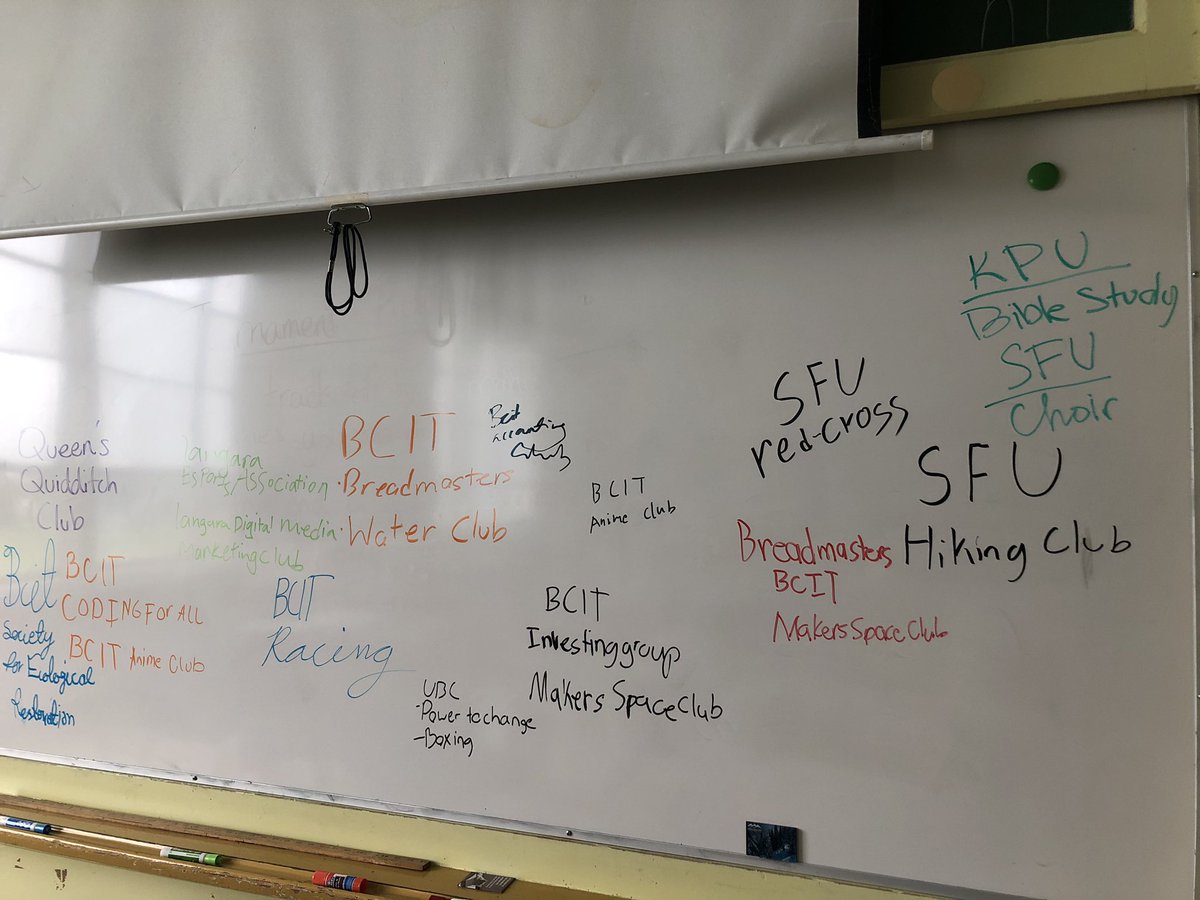 KPU
Bible Study
SFU
Choir
SFU
red-cross
SFU
Hiking Club
Breadmasters
BCIT
MakersSpaceClub
BCIT
Anime Club
Bcit
Accounting
BCIT
·Breadmasters
·Water Club
langara
Esports Association
langara Digital Media
Marketing Club
Queen's
Quidditch
Club
Bcit
Society
for Ecological
Restoration
BCIT
CODING FOR ALL
BCIT Anime Club
BCIT
Racing
UBC
·Power to change
-Boxing
BCIT
Investing group
Makers Space Club